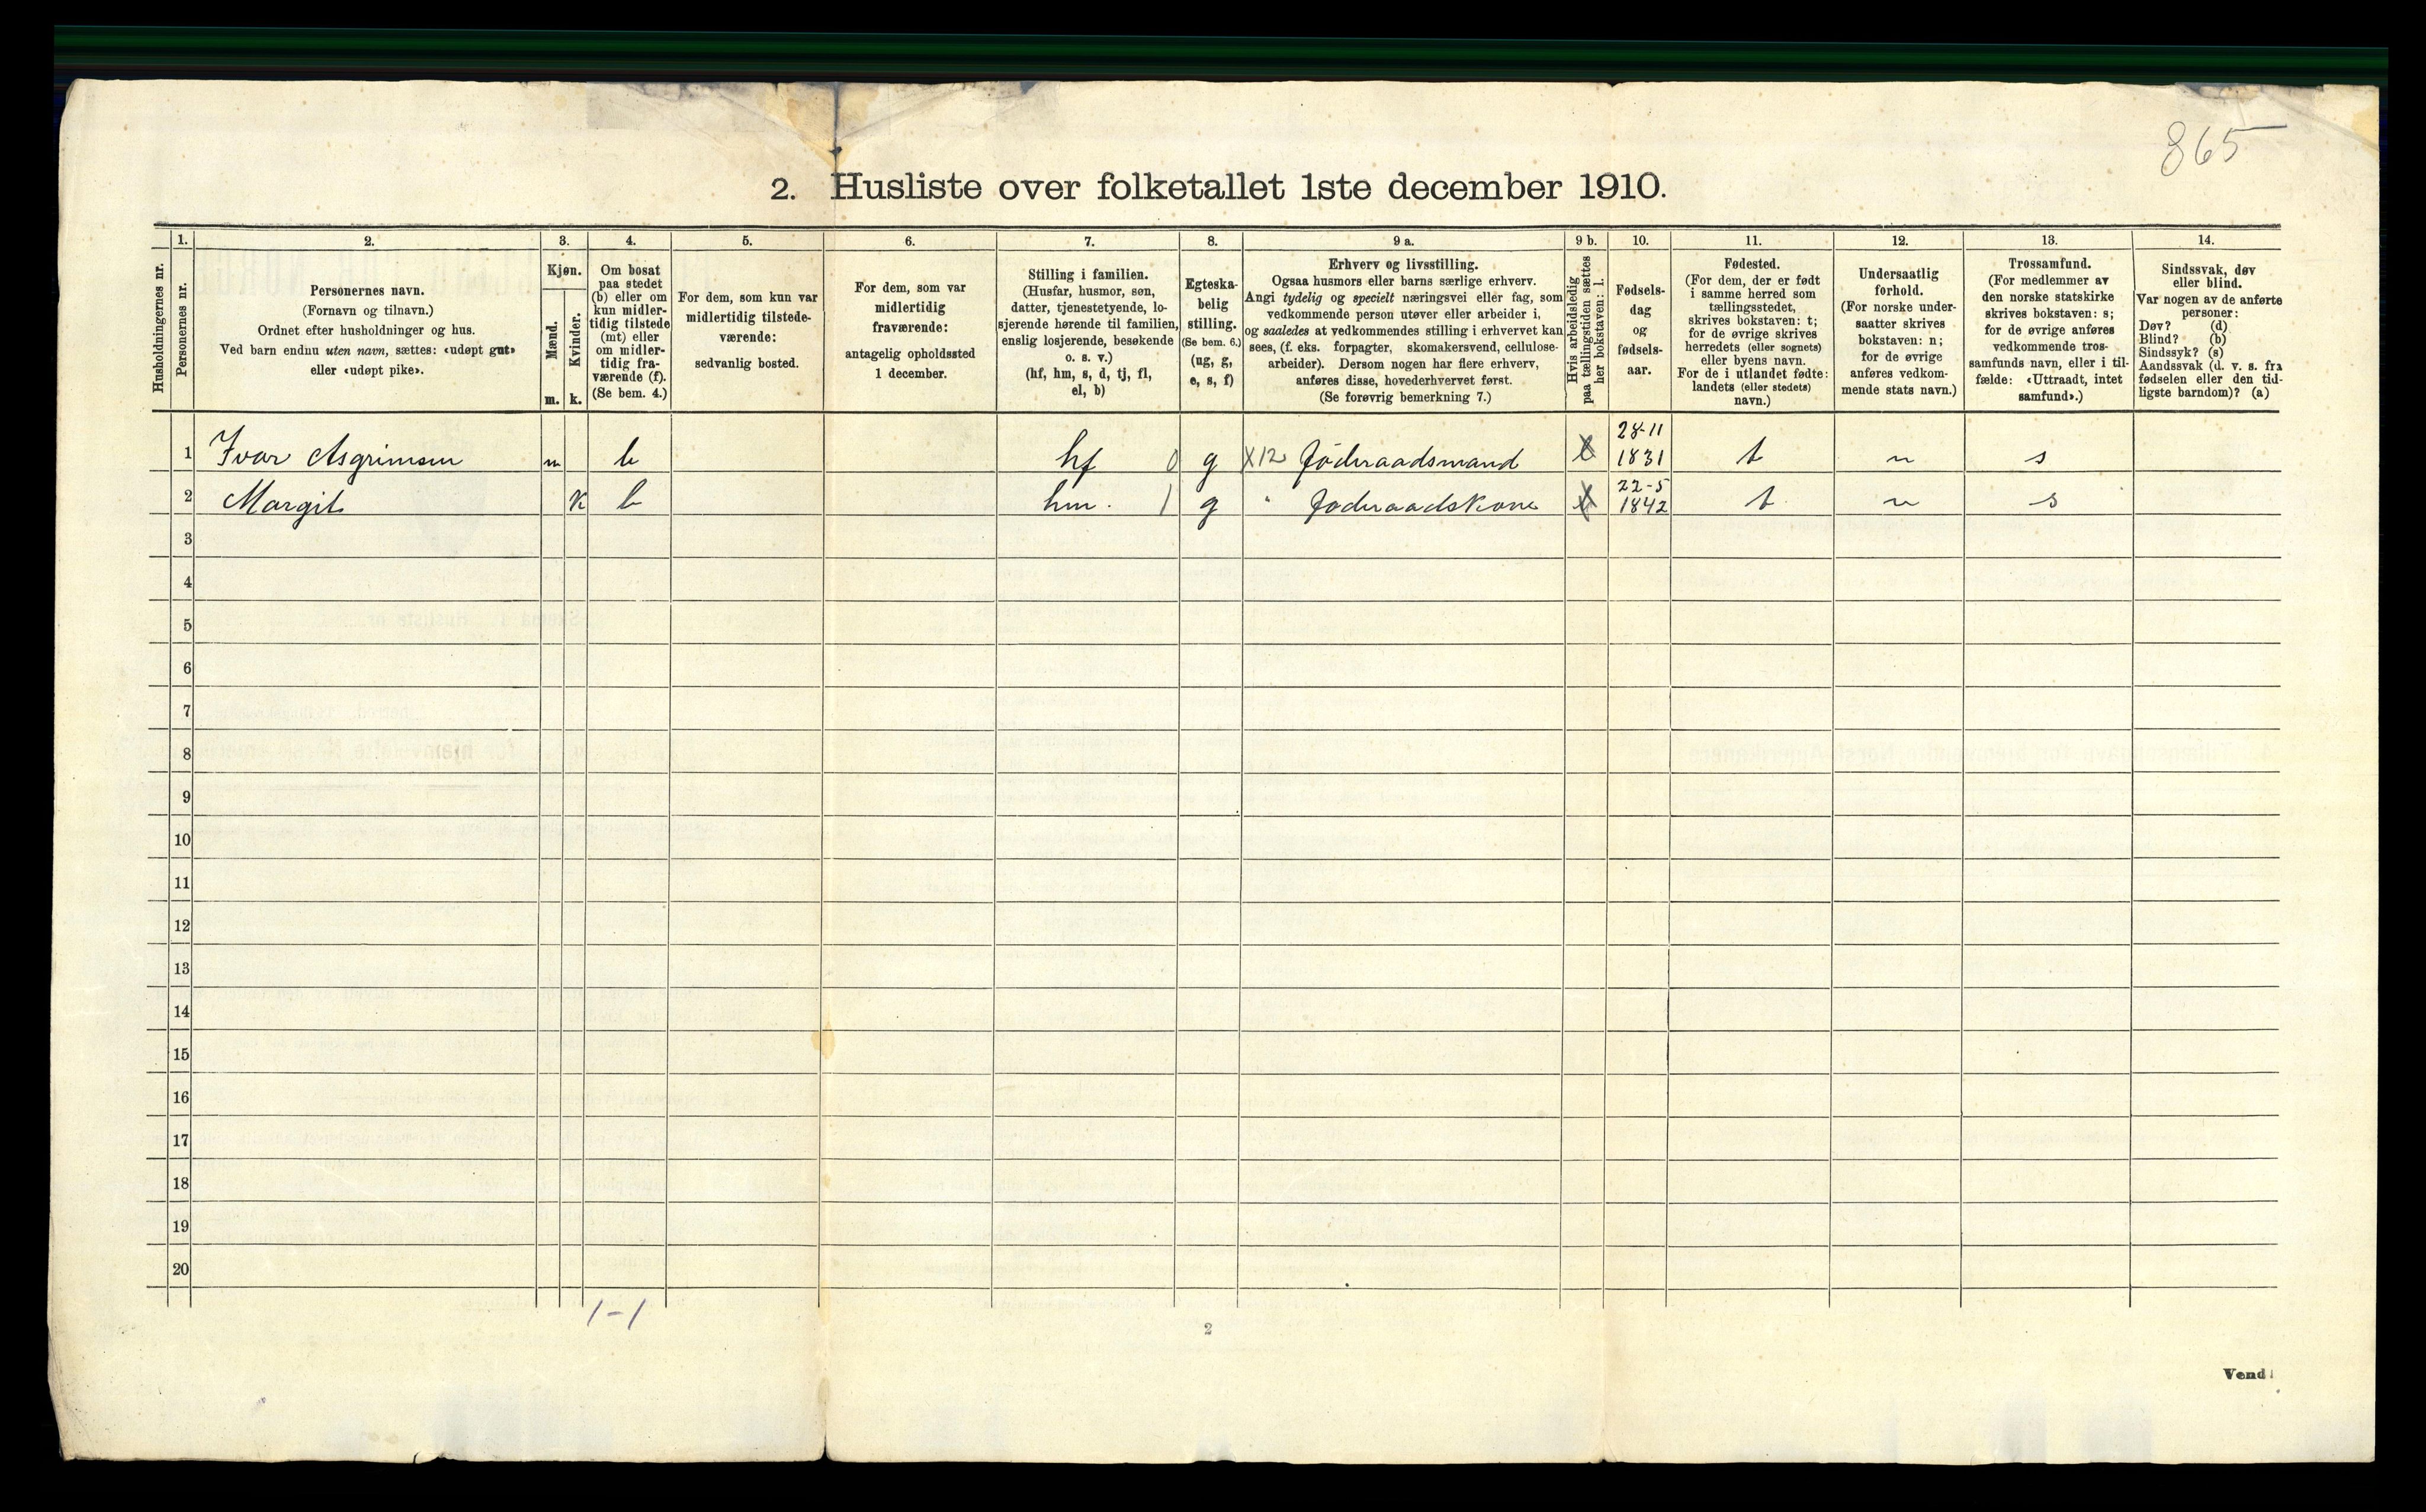 865
2. Husliste over folketallet 1ste december 1910.
Husholdningernes nr.
1.
Personernes nr.
2.
Personernes navn.
(Fornavn og tilnavn.)
Ordnet efter husholdninger og hus.
Ved barn endnu uten navn, sættes: «udøpt gut»
eller «udøpt pike».
3.
Kjøn.
Mænd.
Kvinder.
m. k.
4.
Om bosat
paa stedet
(b) eller om
kun midler-
tidig tilstede
(mt) eller
om midler-
tidig fra-
værende (f).
(Se bem. 4.)
5.
For dem, som kun var
midlertidig tilstede-
værende:
sedvanlig bosted.
6.
For dem, som var
midlertidig
fraværende:
antagelig opholdssted
1 december.
7.
Stilling i familien.
(Husfar, husmor, søn,
datter, tjenestetyende, lo-
sjerende hørende til familien,
enslig losjerende, besøkende
o. s. v.)
(hf, hm, s, d, tj, fl,
el, b)
8.
Egteska-
belig
stilling.
(Se bem. 6.)
(ug, g,
e, s, f)
9 a.
Erhverv og livsstilling.
Ogsaa husmors eller barns særlige erhverv.
Angi tydelig og specielt næringsvei eller fag, som
vedkommende person utøver eller arbeider i,
og saaledes at vedkommendes stilling i erhvervet kan
sees, (f. eks. forpagter, skomakersvend, cellulose-
arbeider). Dersom nogen har flere erhverv,
anføres disse, hovederhvervet først.
(Se forøvrig bemerkning 7.)
9 b.
Hvis arbeidsledig
paa tællingstiden sættes
her bokstaven: l.
10.
Fødsels-
dag
og
fødsels-
aar.
11.
Fødested.
(For dem, der er født
i samme herred som
tællingsstedet,
skrives bokstaven: t;
for de øvrige skrives
herredets (eller sognets)
eller byens navn.
For de i utlandet fødte:
landets (eller stedets)
navn.)
12.
Undersaatlig
forhold.
(For norske under-
saatter skrives
bokstaven: n;
for de øvrige
anføres vedkom-
mende stats navn.)
13.
Trossamfund.
(For medlemmer av
den norske statskirke
skrives bokstaven: s;
for de øvrige anføres
vedkommende tros-
samfunds navn, eller i til-
fælde: «Uttraadt, intet
samfund».)
14.
Sindssvak, døv
eller blind.
Var nogen av de anførte
personer:
Døv? (d)
Blind? (b)
Sindssyk? (s)
Aandssvak (d. v. s. fra
fødselen eller den tid-
ligste barndom)? (a)
1 Ivar Asgrimsen m b hf 0 g X12 Føderaadsmand 28-11 1831 t n s
2 Margit k b hm. 1 g " Føderaadskone 22-5 1842 t n s
3
4
5
6
7
8
9
10
11
12
13
14
15
16
17
18
19
20
1-1
2
Vend